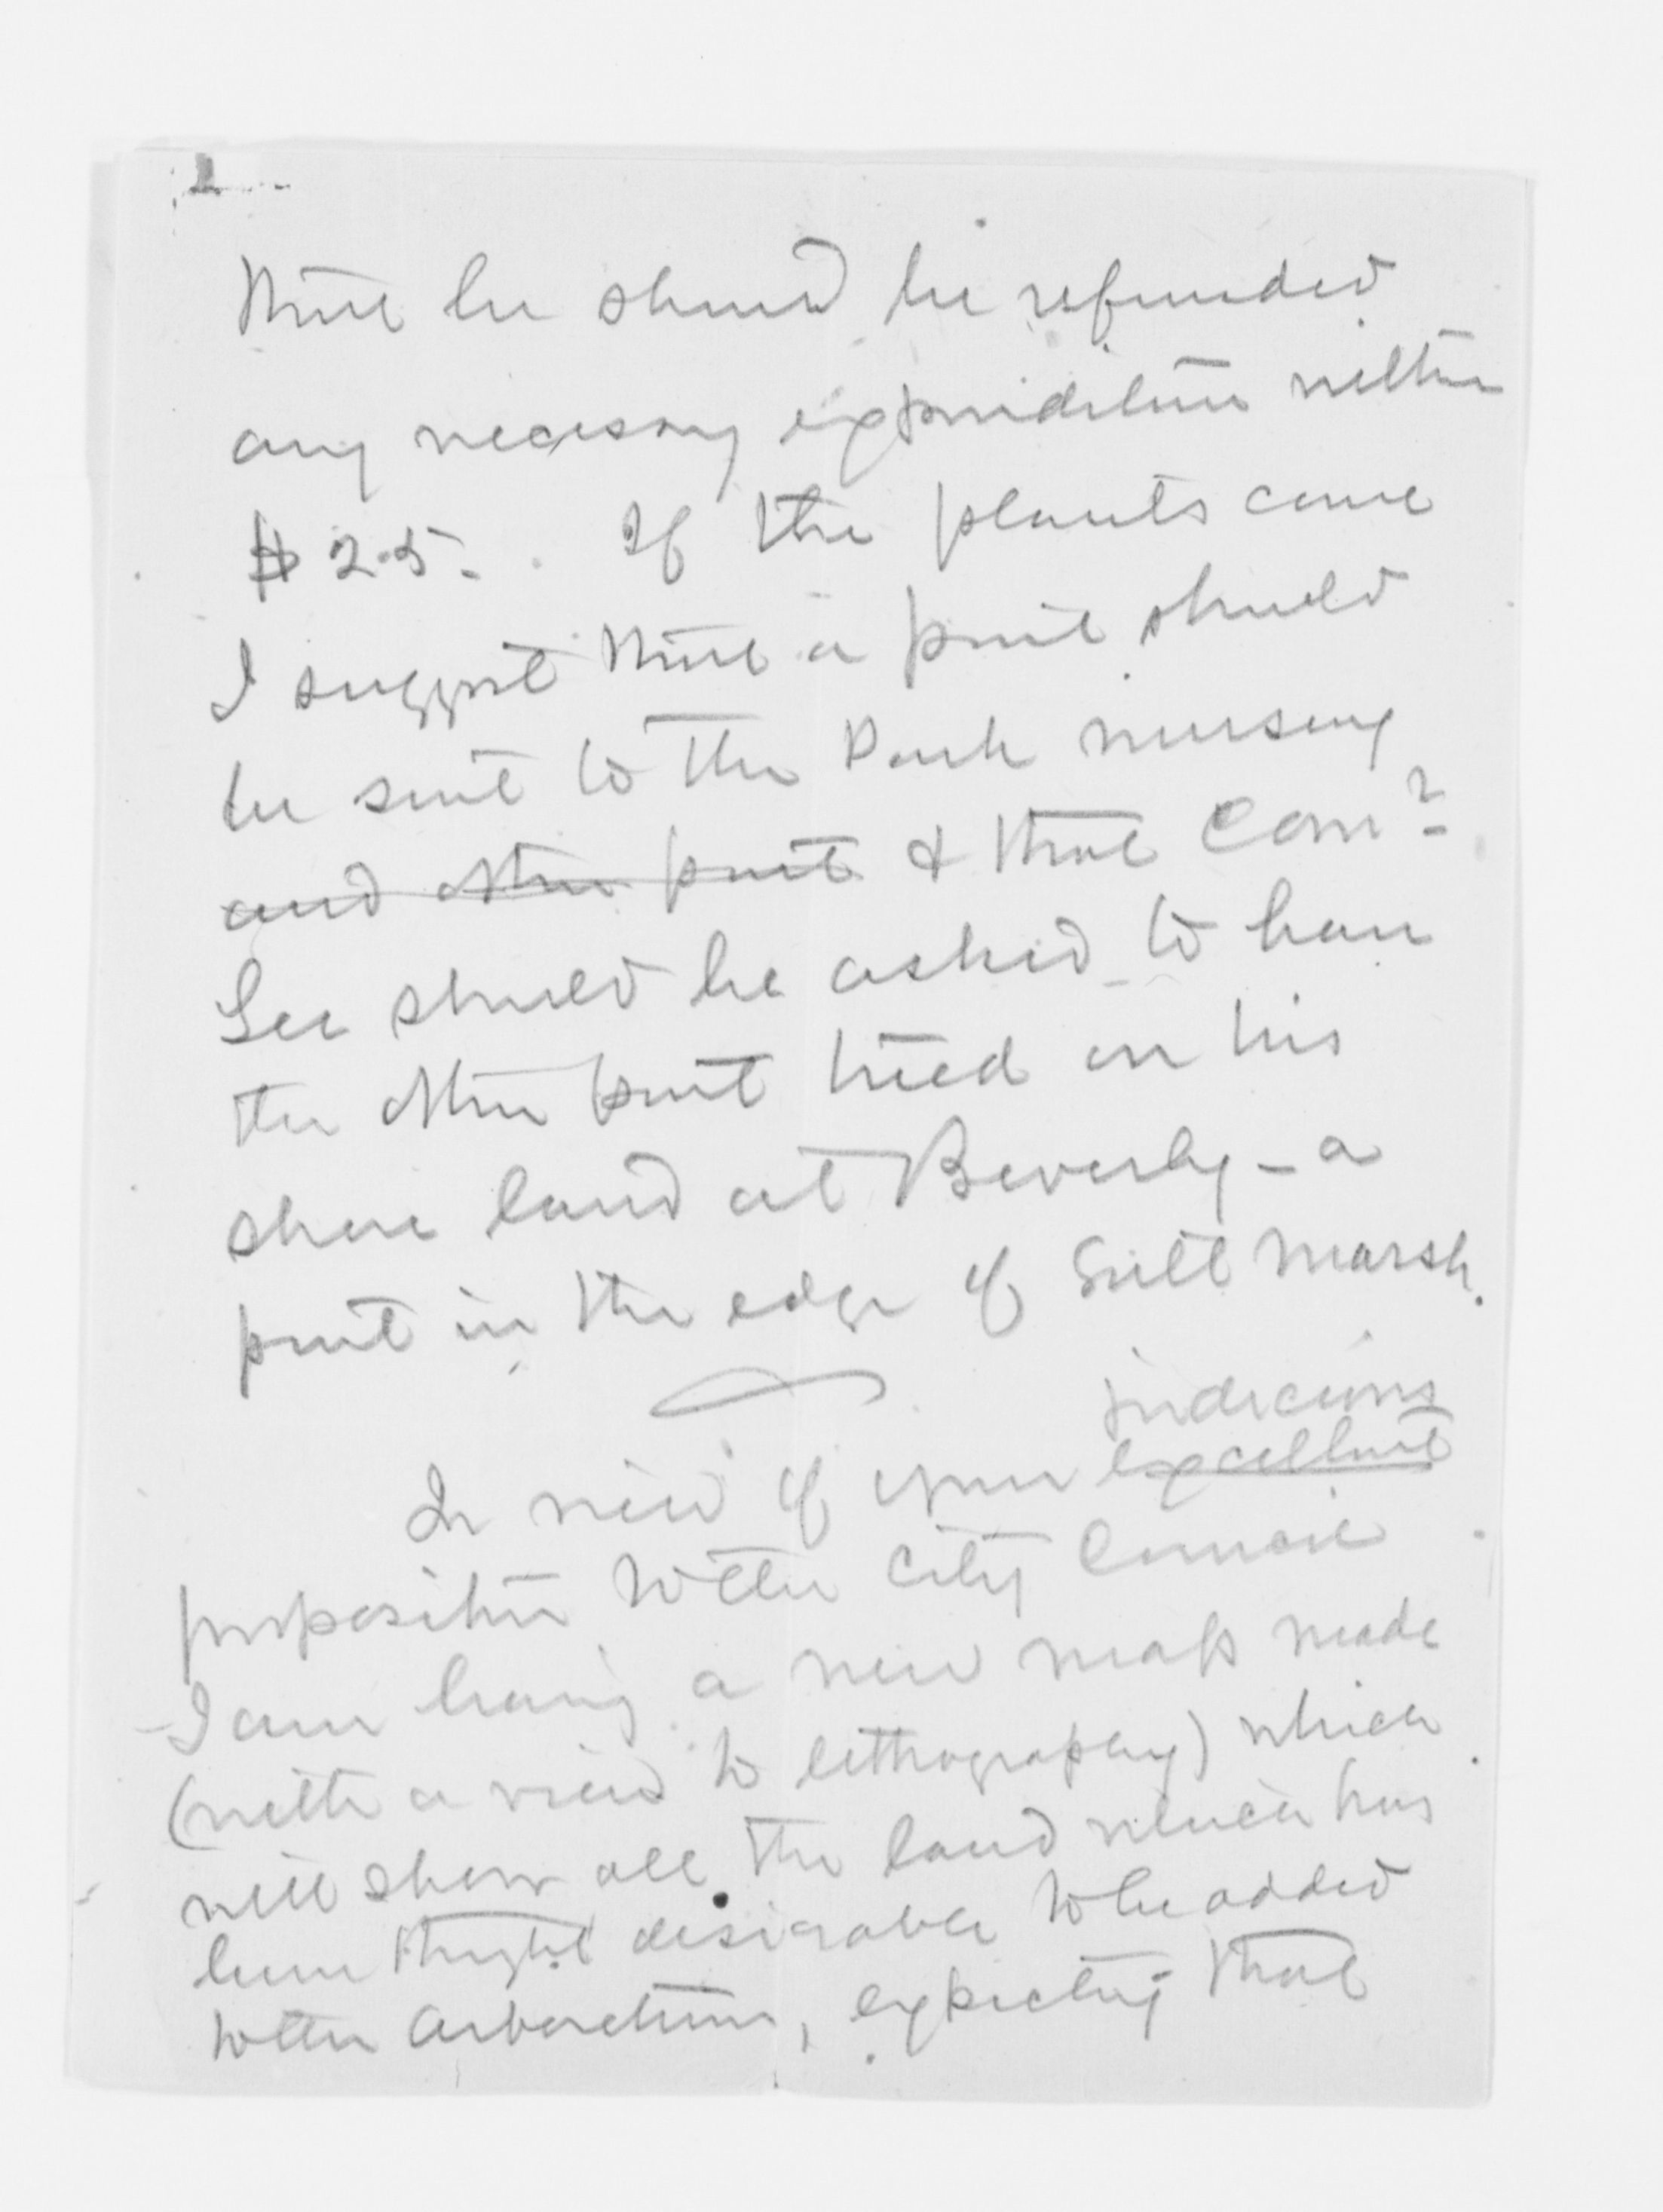 that he should be refunded
any necessary expenditure within
$25. If the plants come
I suggest that a part should
be sent to the Park nursery
and other part & that Comr
Lee should be asked to have
the other part tried on his
shore land at Beverly - a
part in the edge of Salt Marsh.
judicious
In view of your excellent
proposition to the City Council
I am having a new map made
(with a view to lithography) which
will show all the land which has
been thought desirable to be added
to the Arboretum, expecting that